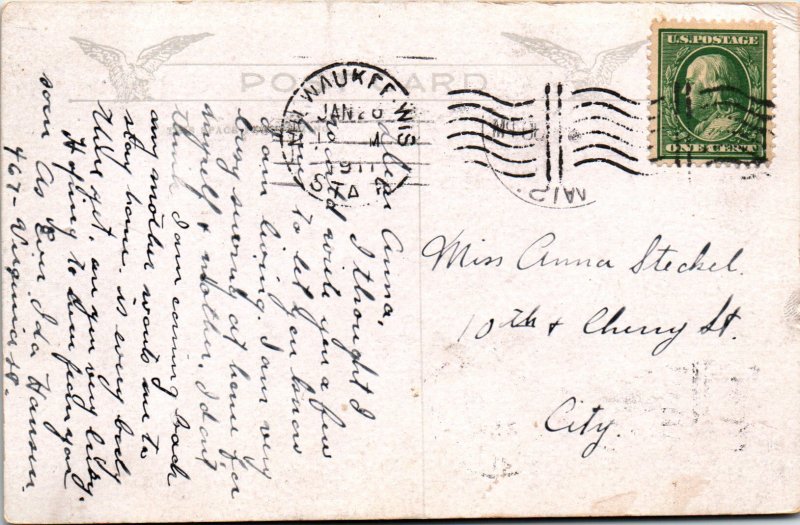 POST CARD
MILWAUKEE WIS
JAN 26
1 M
1911
STA
U.S. POSTAGE
ONE CENT
Dear Anna,
I thought I
would write you a few
lines to let you know
I am living. I am very
busy sewing at home for
myself & mother. I don't
think I am coming back
any mother wants me to
stay home. is every body
there yet. are you very busy.
Hoping to hear from you
soon As Ever Ida Hansen.
467 - Virginia St.
Miss Anna Steckel.
10th & Cherry St.
City.